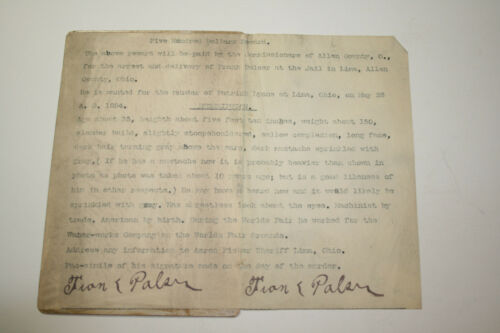 Five Hundred Dollars Reward.
The above reward will be paid by the Commissioners of Allen County, O.,
for the arrest and delivery of Frank Palser at the Jail in Lima, Allen
County, Ohio.
He is wanted for the murder of Patrick Lyons at Lima, Ohio, on May 28
A. D. 1894. DESCRIPTION.
Age about 35, heighth about five feet ten inches, weight about 150,
slender build, slightly stoopshouldered, sallow complexion, long face,
dark hair turning gray above the ears, dark mustache sprinkled with
gray.( If he has a mustache now it is probably heavier than shown in
photo as photo was taken about 10 years ago; but is a good likeness of
him in other respects.) He may have a beard now and it would likely be
sprinkled with gray. Has a restless look about the eyes. Machinist by
trade. American by birth. During the Worlds Fair he worked for the
Water-works Company on the Worlds Fair Grounds.
Address any information to Aaron Fisher Sheriff Lima, Ohio.
Fac-simile of his signature made on the day of the murder.
Frank Palser Frank Palser